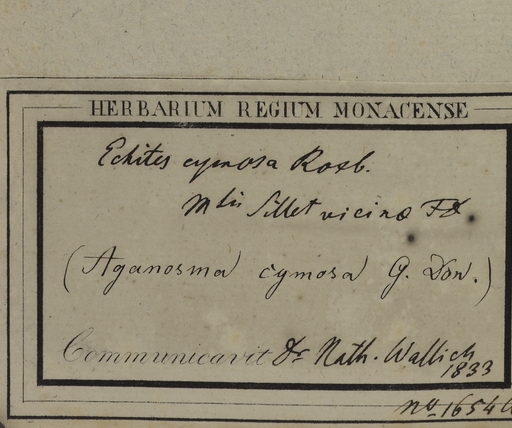 HERBARIUM REGIUM MONACENSE
Echites cymosa Roxb.
Mtis Sillet vicinæ FD
(Aganosma cymosa G. Don.)
Communicavit Dr Nath. Wallich
1833
No. 1654